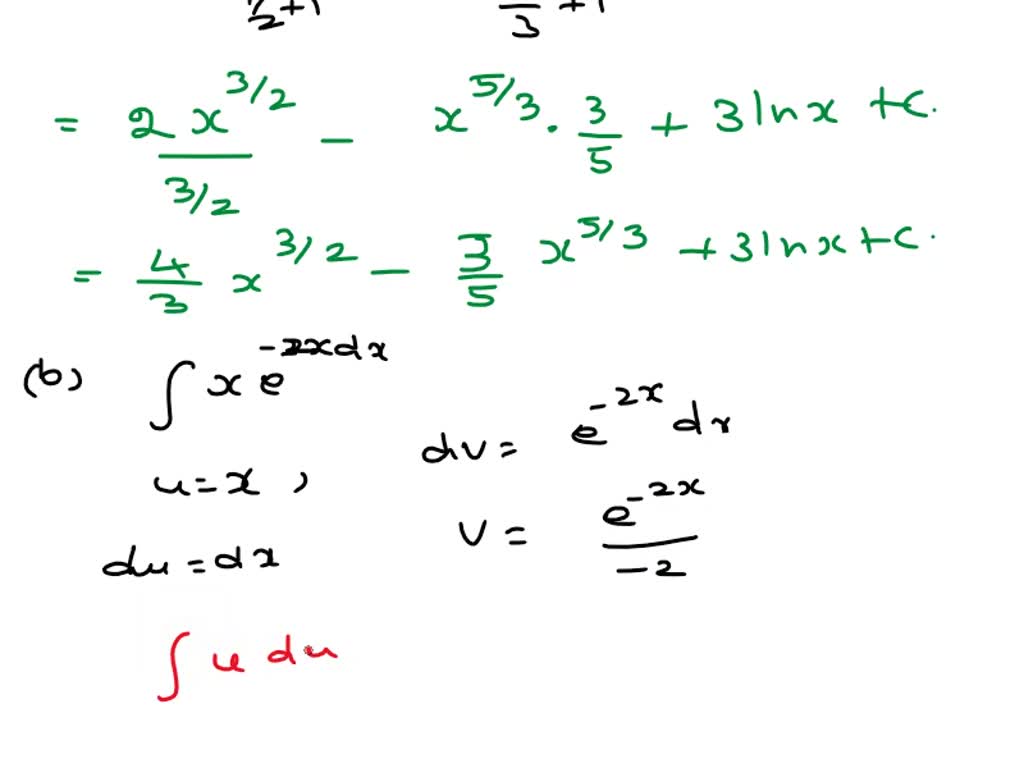 /2+1 /3 +1
= 2x^{3/2} / 3/2 - x^{5/3} · 3/5 + 3 ln x + c.
= 4/3 x^{3/2} - 3/5 x^{5/3} + 3 ln x + c.
(b) ∫ x e^{-2x dx}
u = x , dv = e^{-2x} dx
du = dx v = e^{-2x} / -2
∫ u du